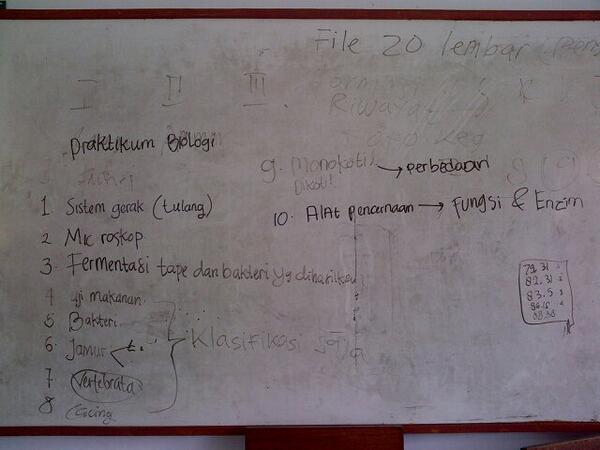 File 20 lembar
I II III
Riwayat
praktikum Biologi
1 Sistem gerak (tulang)
2 Mic roskop
3. Fermentasi tape dan bakteri yg dihasilkan
4 uji makanan
5 Bakteri
6. Jamur
7 Vertebrata
8 Cacing
Klasifikasi saja
9. Monokotil
Dikotil
→ perbedaan
10. Alat pencernaan → Fungsi & Enzim
82.31
83.5